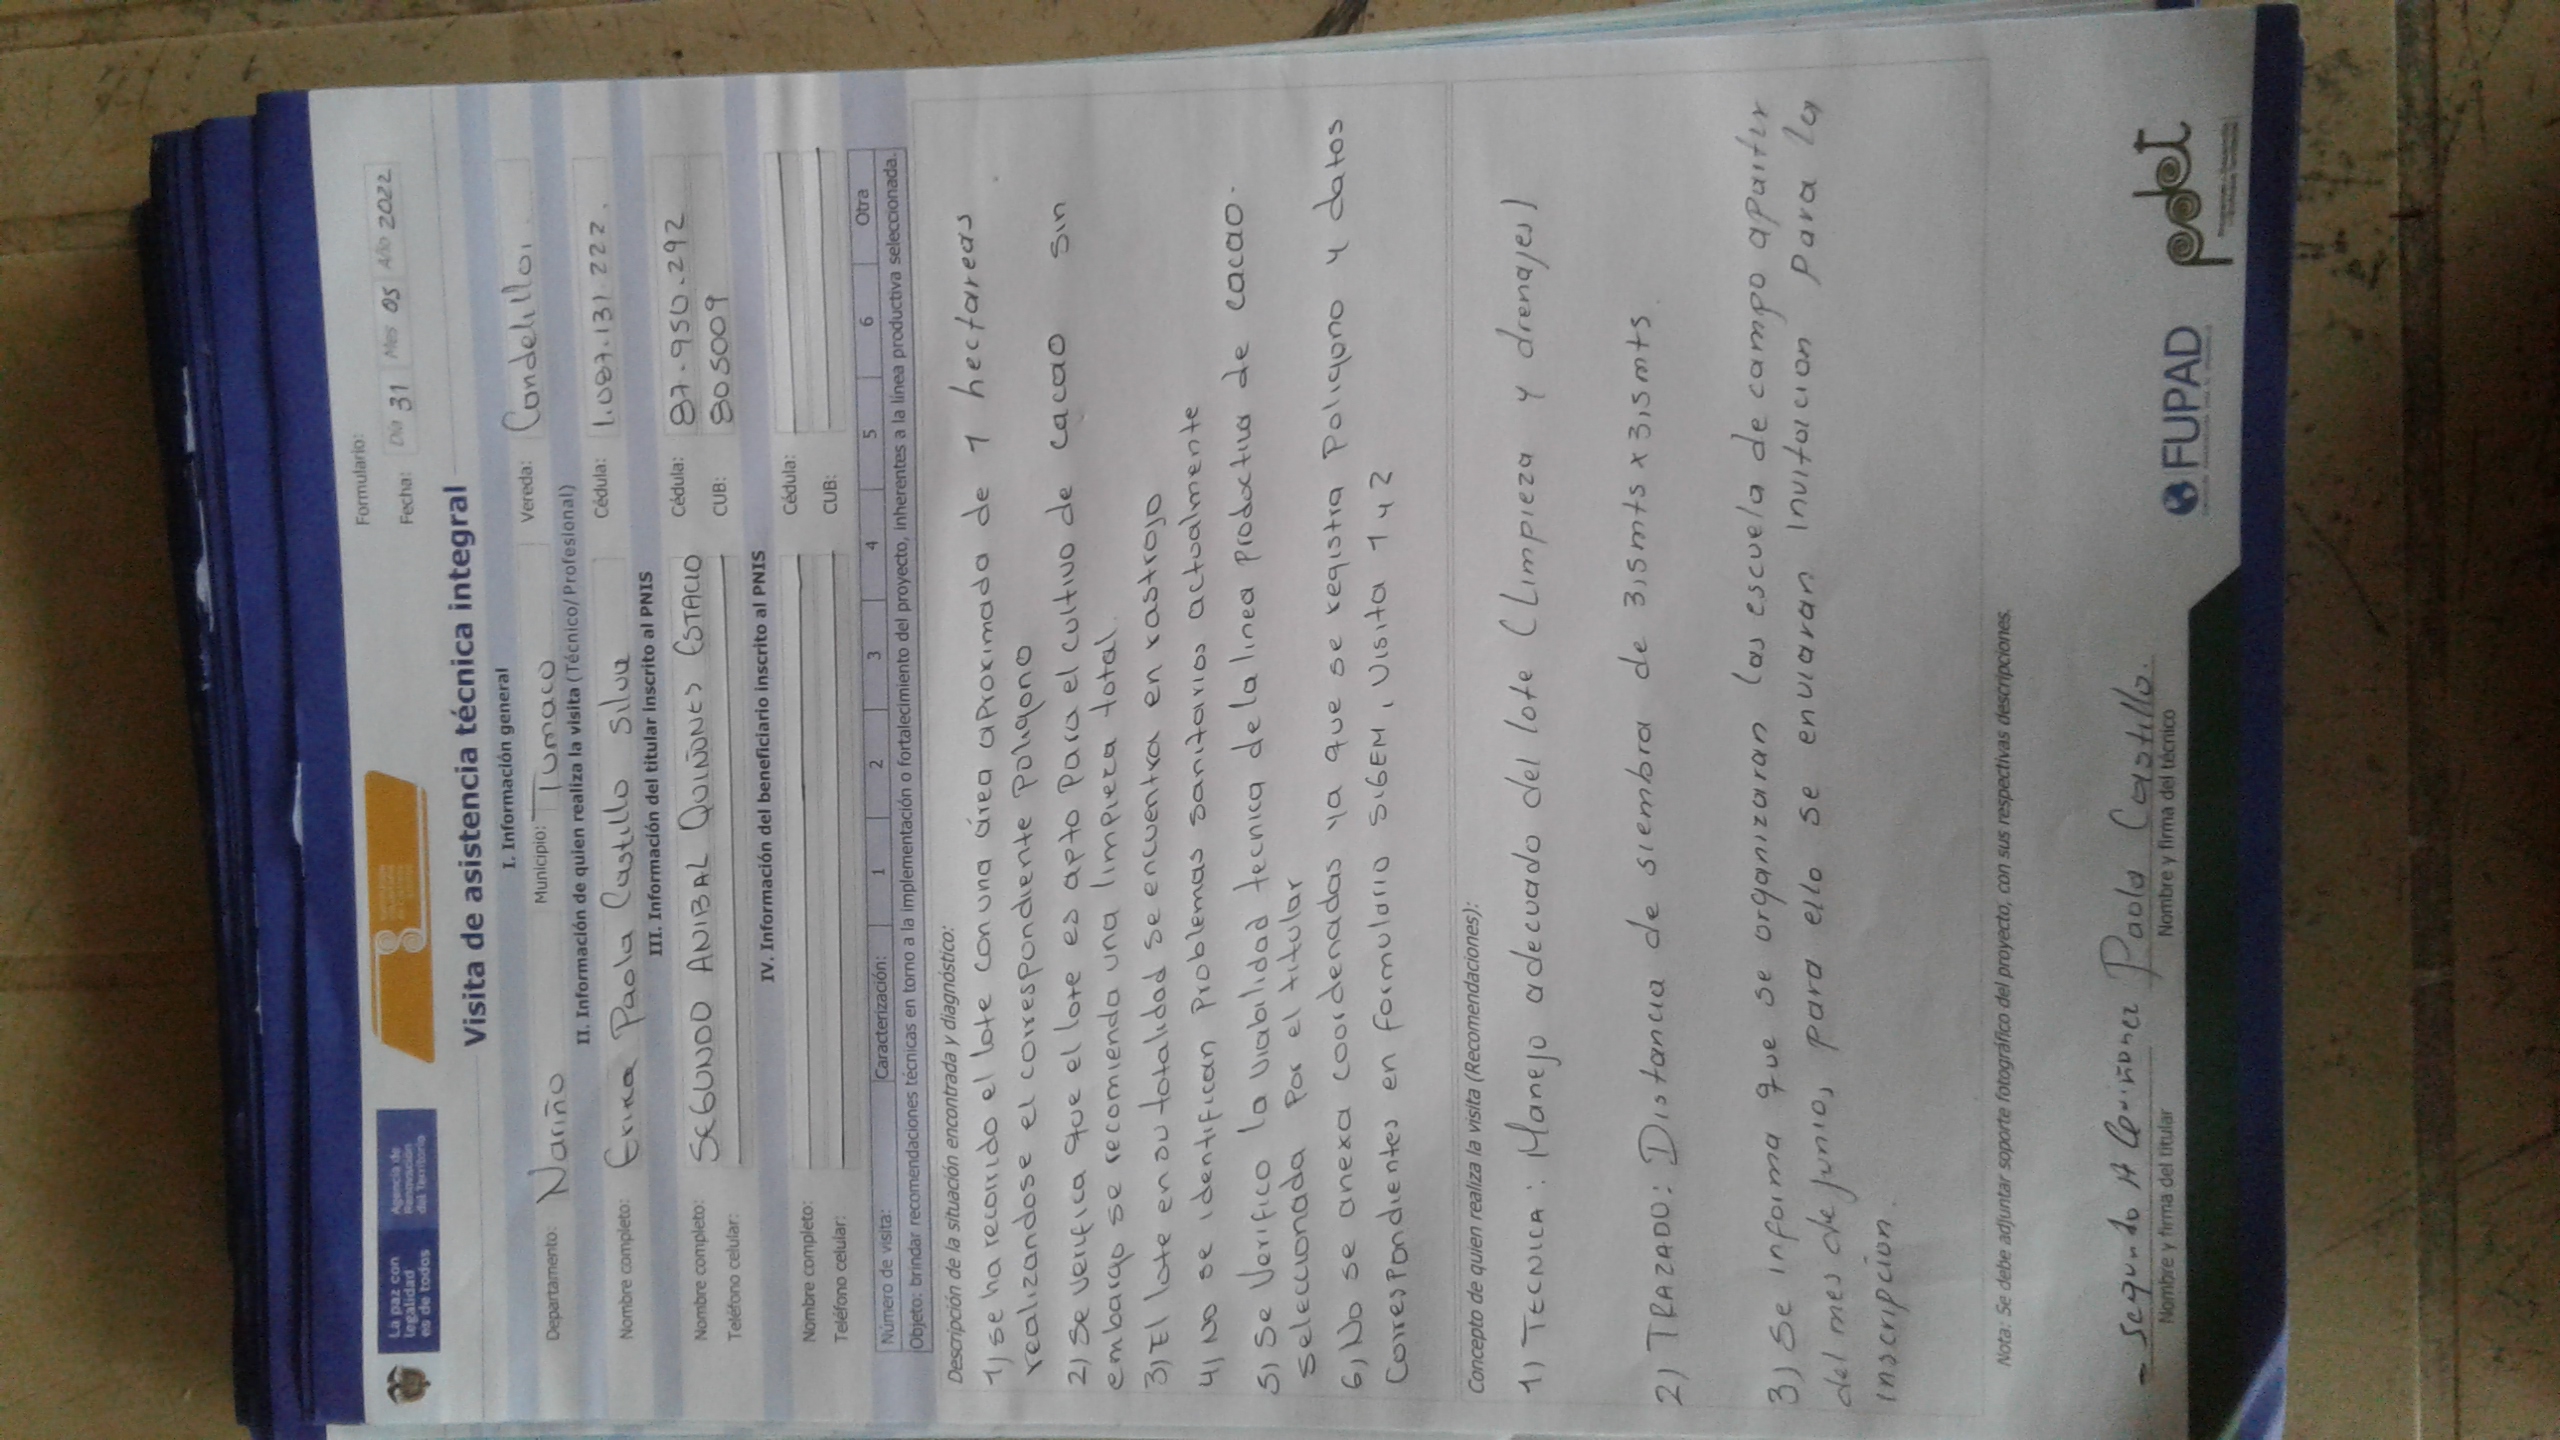 La paz con
legalidad
es de todos
Agencia de
Renovación
del Territorio
Formulario:
Fecha: Día 31 Mes 05 Año 2022
Visita de asistencia técnica integral
I. Información general
Departamento: Nariño Municipio: Tumaco Vereda: Candelillo.
II. Información de quien realiza la visita (Técnico/Profesional)
Nombre completo: Erika Paola Castillo Silva Cédula: 1.087.131.222.
III. Información del titular inscrito al PNIS
Nombre completo: SEGUNDO ANIBAL QUIÑONES ESTACIO Cédula: 87.950.292
Teléfono celular: CUB: 805009
IV. Información del beneficiario inscrito al PNIS
Nombre completo: Cédula:
Teléfono celular: CUB:
Número de visita: Caracterización: 1 2 3 4 5 6 Otra
Objeto: brindar recomendaciones técnicas en torno a la implementación o fortalecimiento del proyecto, inherentes a la línea productiva seleccionada.
Descripción de la situación encontrada y diagnóstico:
1) se ha recorrido el lote con una área aproximada de 1 hectareas
realizandose el correspondiente poligono
2) Se verifica que el lote es apto para el cultivo de cacao sin
embargo se recomienda una limpieza total.
3) El lote en su totalidad se encuentra en rastrojo
4) No se identifican problemas sanitarios actualmente
5) Se Verifico la viabilidad tecnica de la linea productiva de cacao.
seleccionada por el titular
6) No se anexa coordenadas ya que se registra Poligono y datos
Correspondientes en formulario SIGEM, Visita 1 y 2
Concepto de quien realiza la visita (Recomendaciones):
1) TECNICA: Manejo adecuado del lote (Limpieza y drenajes)
2) TRAZADO: Distancia de siembra de 3,5mts x 3,5mts.
3) Se informa que se organizaran las escuela de campo apartir
del mes de junio, para ello se enviaran invitacion para la
inscripcion.
Nota: Se debe adjuntar soporte fotográfico del proyecto, con sus respectivas descripciones.
- Segundo A Quiñonez Paola Castillo.
Nombre y firma del titular Nombre y firma del técnico
FUPAD
pdet